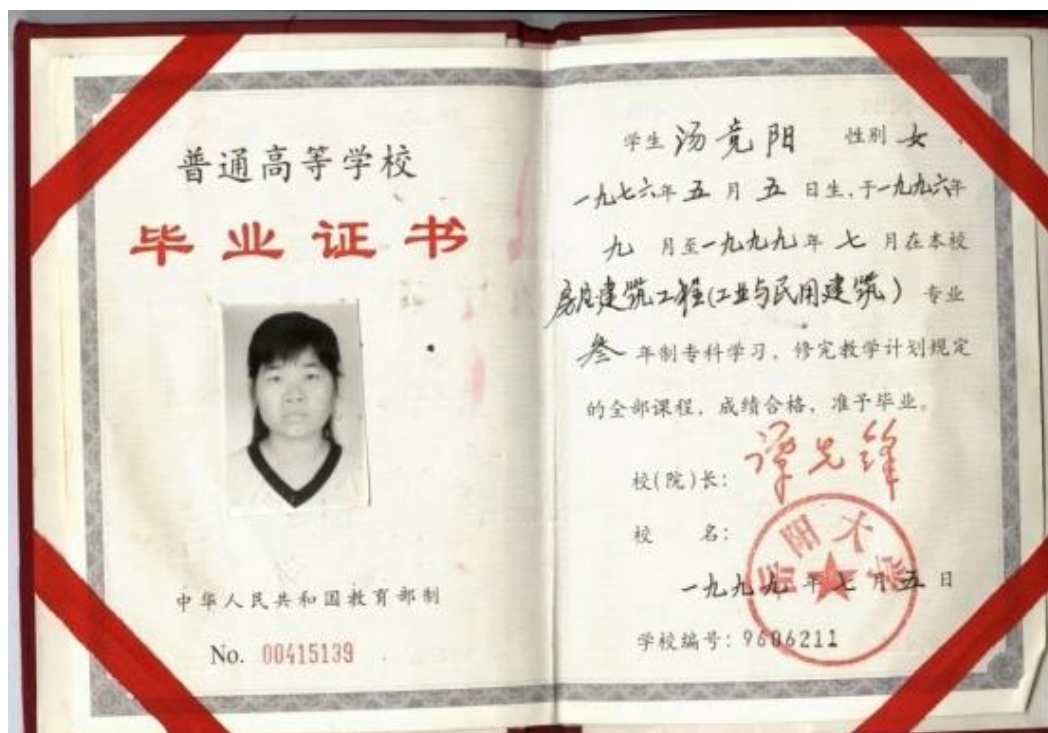 普通高等学校
毕业证书
中华人民共和国教育部制
No. 00415139
学生 汤竞阳 性别 女
一九七六年 五 月 五 日生,于一九九六年
九 月至一九九九年 七 月在本校
房屋建筑工程(工业与民用建筑) 专业
叁 年制专科学习,修完教学计划规定
的全部课程,成绩合格,准予毕业。
校(院)长: 谭先锋
校 名:
岳阳大学
一九九九年七月五日
学校编号:9606211